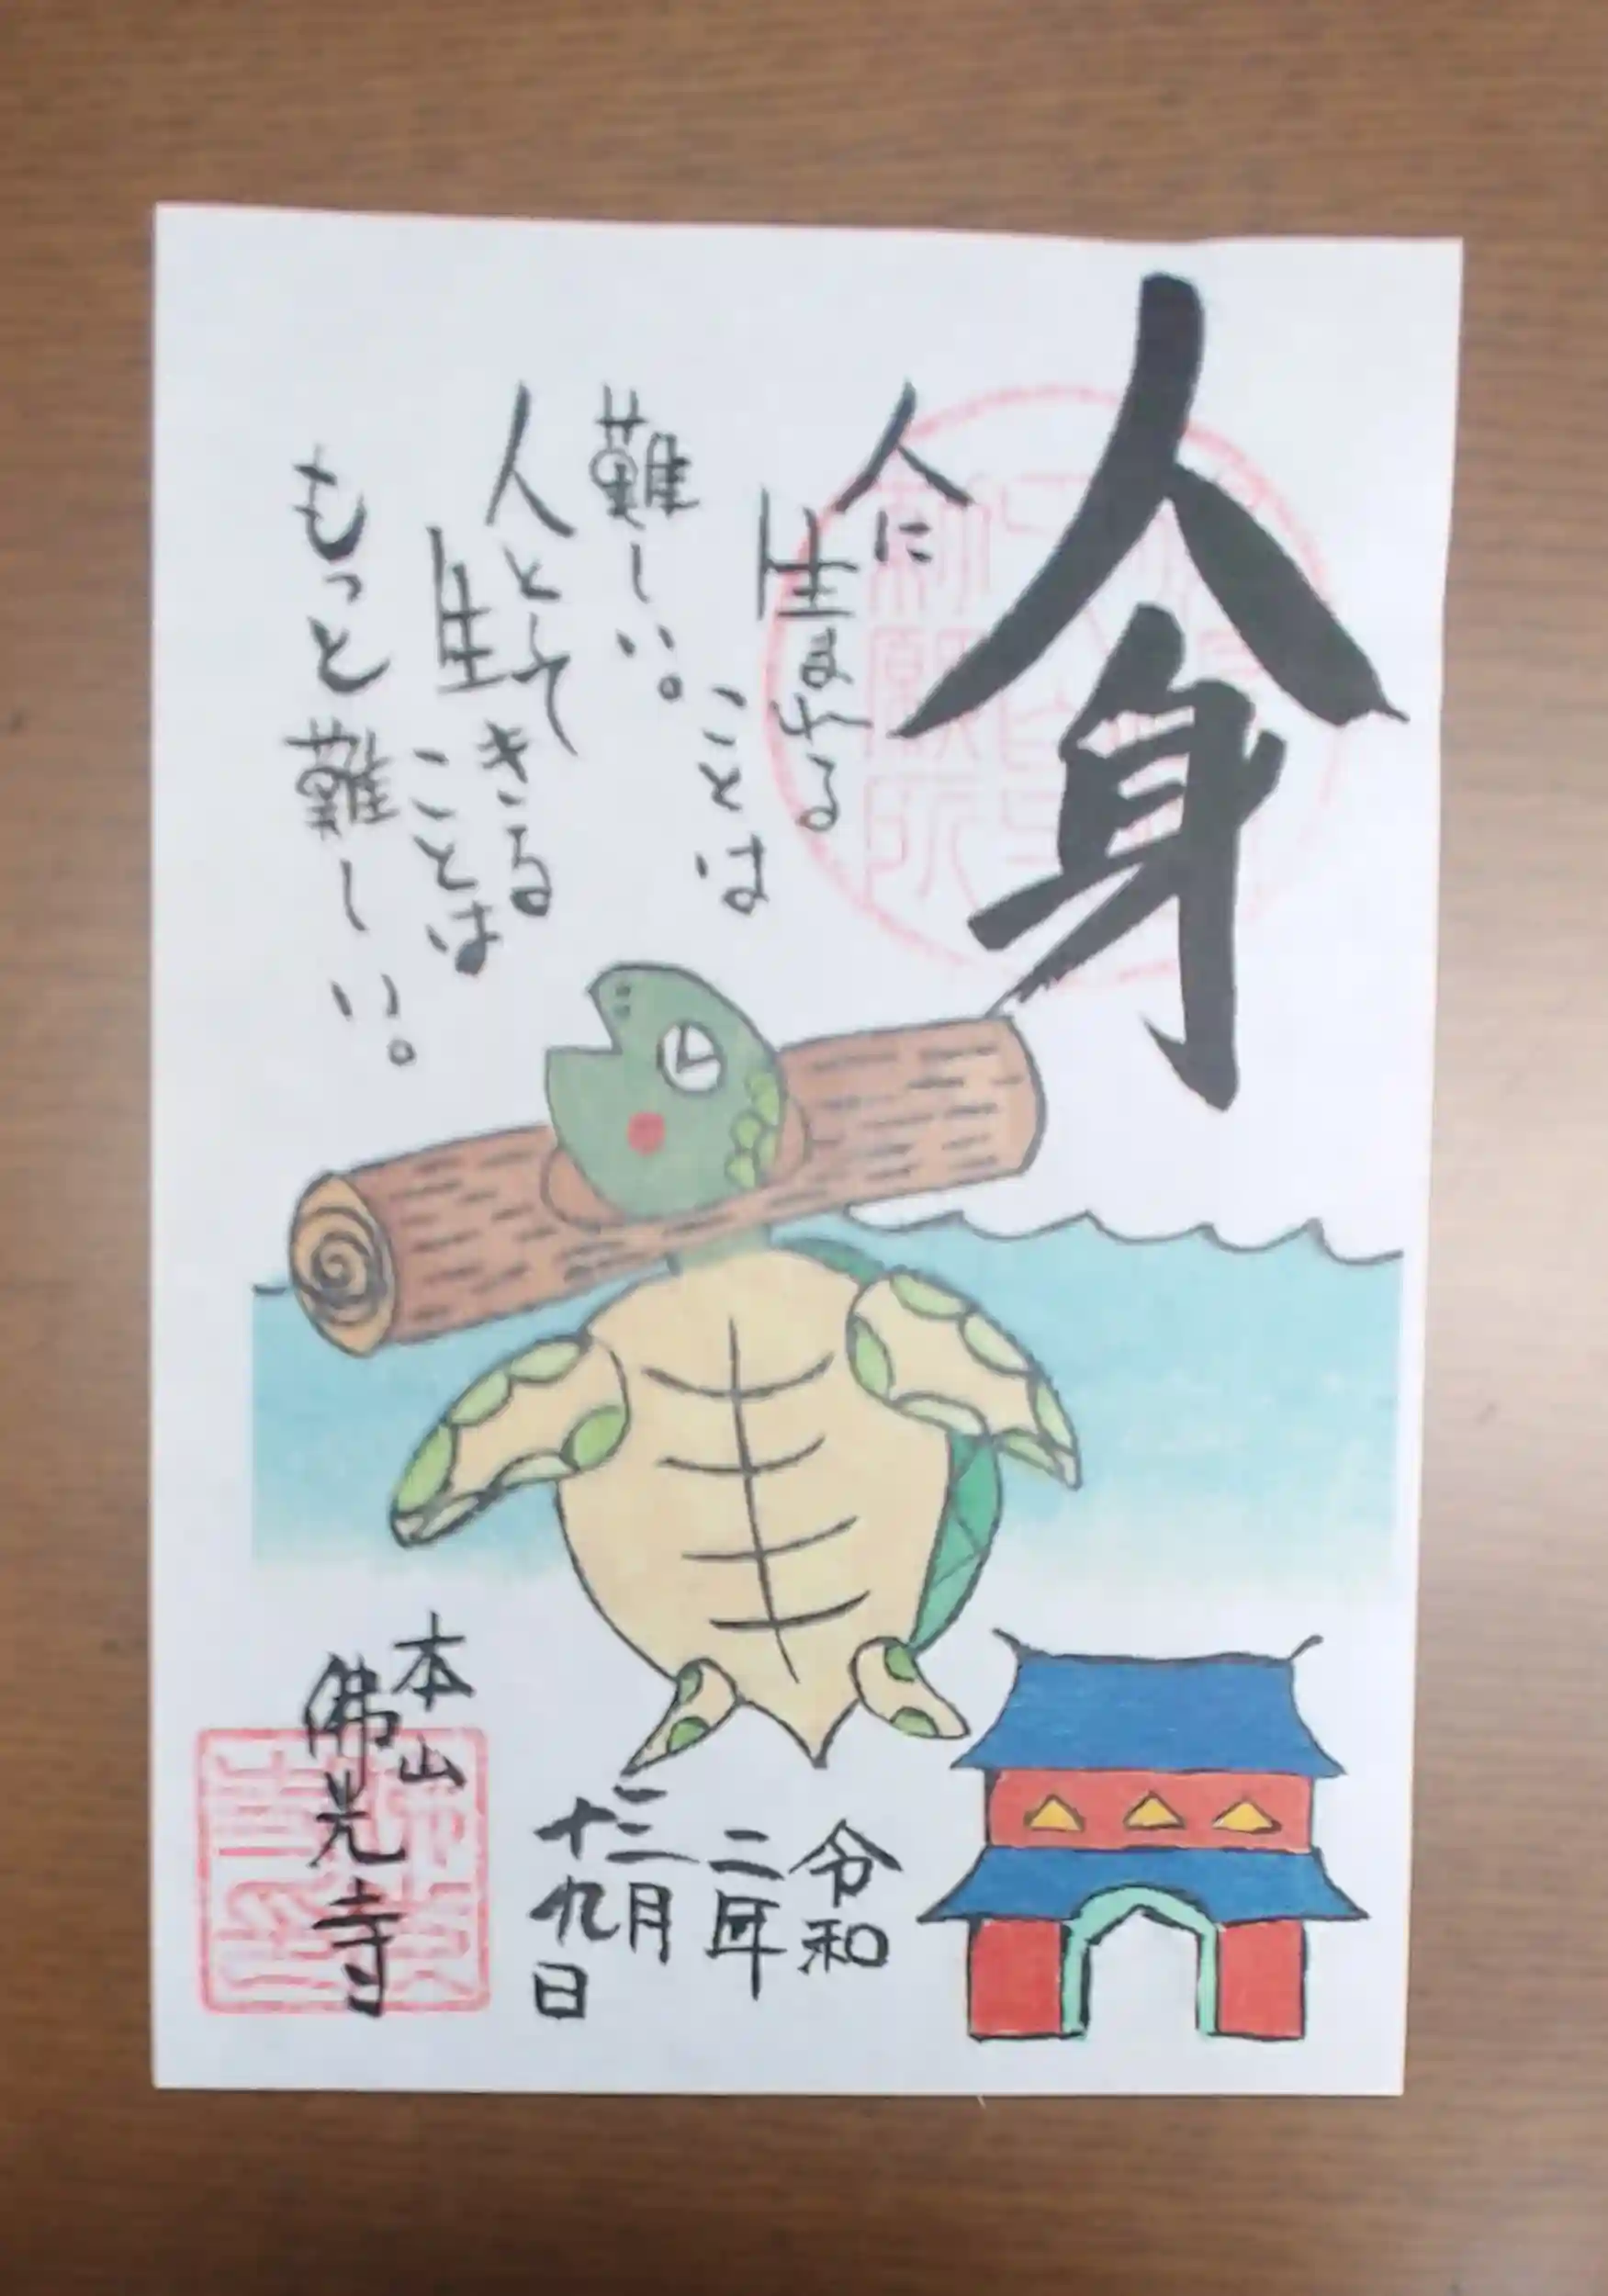 人身
人に
生まれる
ことは
難しい。
人として
生きる
ことは
もっと難しい。
令和
二年
三月
十九日
本山
佛光寺